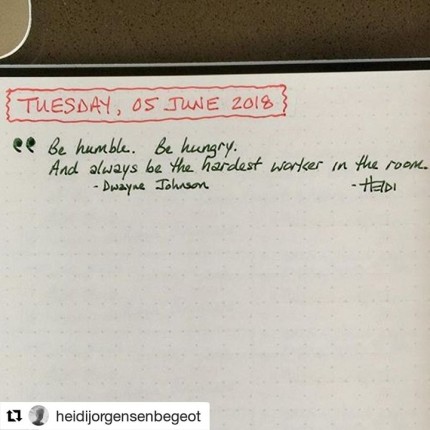 TUESDAY, 05 JUNE 2018
“ Be humble. Be hungry.
And always be the hardest worker in the room.
- Dwayne Johnson
- HEIDI
heidijorgensenbegeot